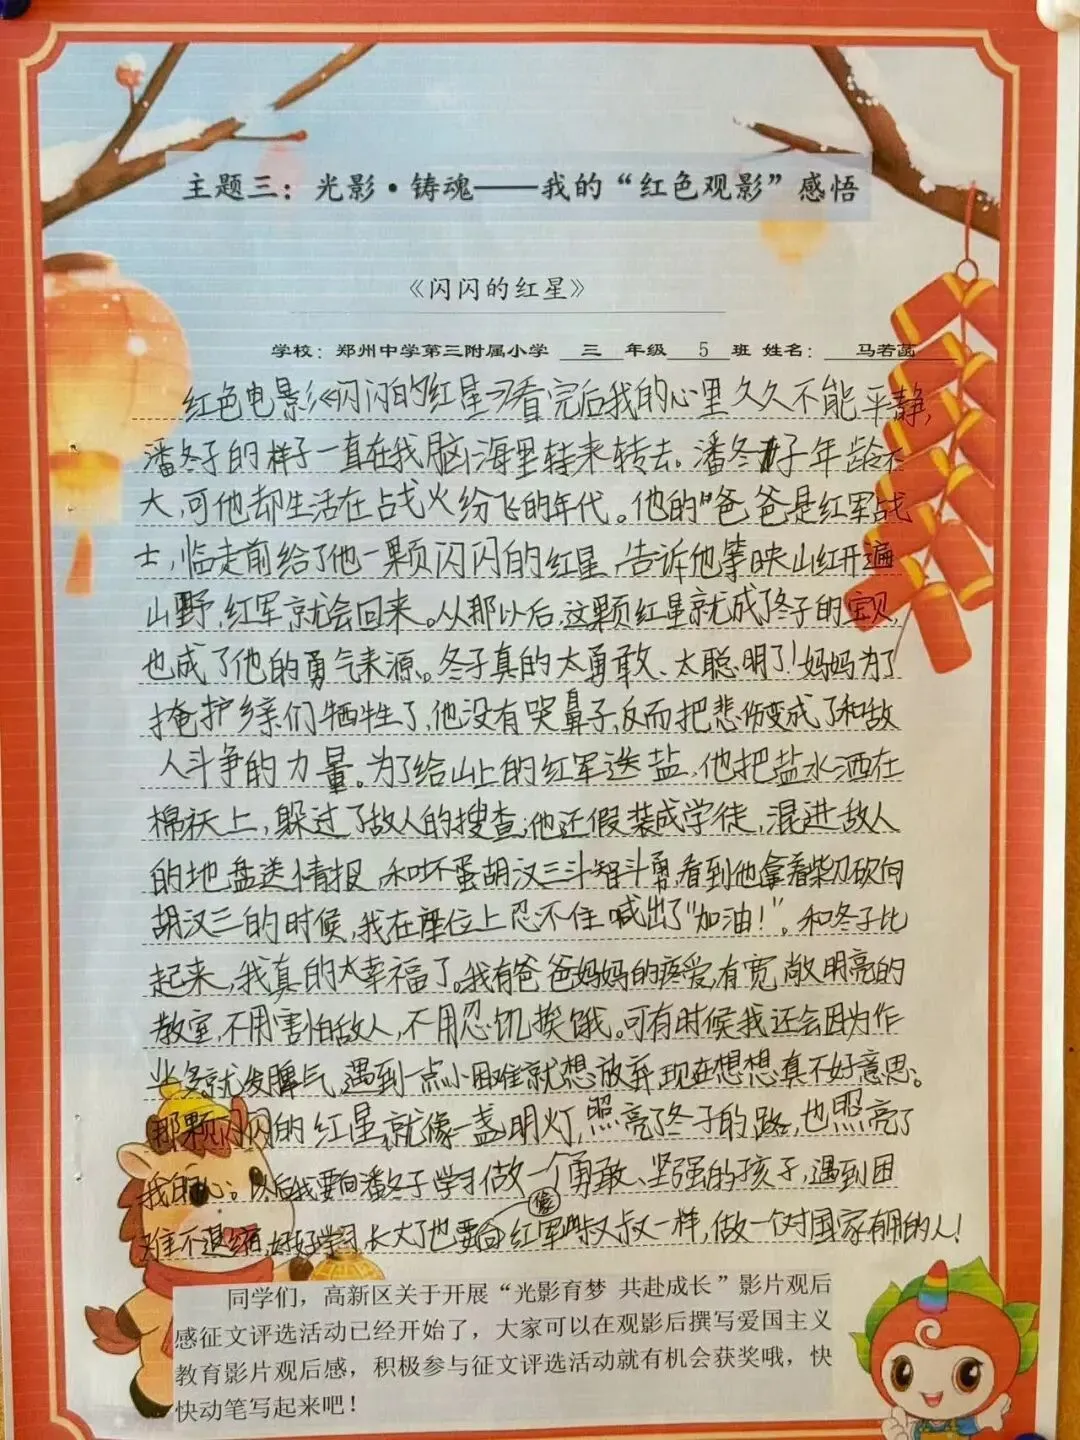 主题三：光影·铸魂——我的“红色观影”感悟
《闪闪的红星》
学校：郑州中学第三附属小学 三 年级 5 班 姓名： 马若菡
红色电影《闪闪的红星》看完后我的心里久久不能平静，
潘冬子的样子一直在我脑海里转来转去。潘冬子年龄不
大，可他却生活在战火纷飞的年代。他的“爸爸是红军战
士，临走前给了他一颗闪闪的红星，告诉他等映山红开遍
山野，红军就会回来。从那以后，这颗红星就成了冬子的宝贝，
也成了他的勇气来源。冬子真的太勇敢、太聪明了！妈妈为了
掩护乡亲们牺牲了，他没有哭鼻子，反而把悲伤变成了和敌
人斗争的力量。为了给山上的红军送盐，他把盐水洒在
棉袄上，躲过了敌人的搜查；他还假装成学徒，混进敌人
的地盘送情报，和坏蛋胡汉三斗智斗勇，看到他拿着柴刀砍向
胡汉三的时候，我在座位上忍不住喊出了“加油！”。和冬子比
起来，我真的太幸福了。我有爸爸妈妈的疼爱，有宽敞明亮的
教室，不用害怕敌人，不用忍饥挨饿。可有时候我还会因为作
业多就发脾气，遇到一点小困难就想放弃，现在想想真不好意思。
那颗闪闪的红星，就像一盏明灯，照亮了冬子的路，也照亮了
我的心。以后我要向潘冬子学习做一个勇敢、坚强的孩子，遇到困
难不退缩，好好学习，长大了也要像红军叔叔一样，做一个对国家有用的人！
同学们，高新区关于开展“光影育梦 共赴成长”影片观后
感征文评选活动已经开始了，大家可以在观影后撰写爱国主义
教育影片观后感，积极参与征文评选活动就有机会获奖哦，快
快动笔写起来吧！